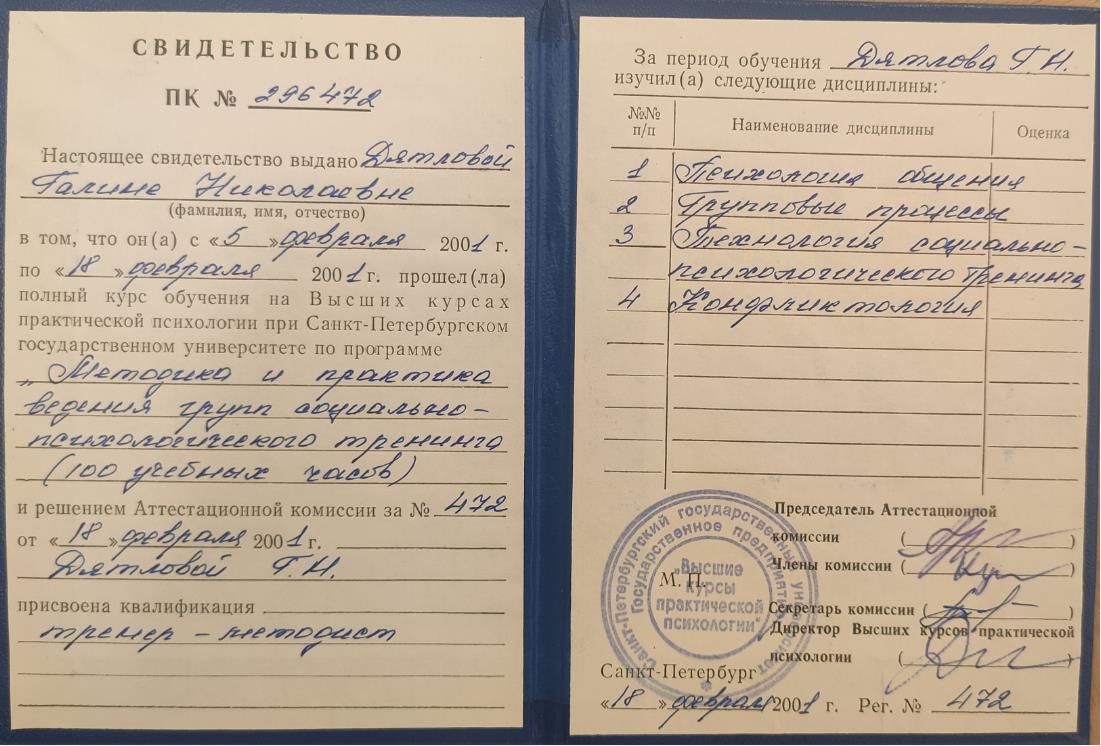 СВИДЕТЕЛЬСТВО
ПК № 296472
Настоящее свидетельство выдано Дятловой
Галине Николаевне
(фамилия, имя, отчество)
в том, что он(а) с «5» февраля 2001 г.
по «18» февраля 2001 г. прошел(ла)
полный курс обучения на Высших курсах
практической психологии при Санкт-Петербургском
государственном университете по программе
„Методика и практика
ведения групп социально-
психологического тренинга
(100 учебных часов)
и решением Аттестационной комиссии за № 472
от «18» февраля 2001 г.
Дятловой Г.Н.
присвоена квалификация
тренер-методист
За период обучения Дятлова Г.Н.
изучил(а) следующие дисциплины:
№№ п/п Наименование дисциплины Оценка
1 Психология общения
2 Групповые процессы
3 Технология социально-
психологического тренинга
4 Конфликтология
Председатель Аттестационной
комиссии ( )
Члены комиссии ( )
М. П.
Секретарь комиссии ( )
Директор Высших курсов практической
психологии ( )
Санкт-Петербург
«18» февраля 2001 г. Рег. № 472
Санкт-Петербургский государственный университет
Государственное предприятие
„Высшие
курсы
практической
психологии"